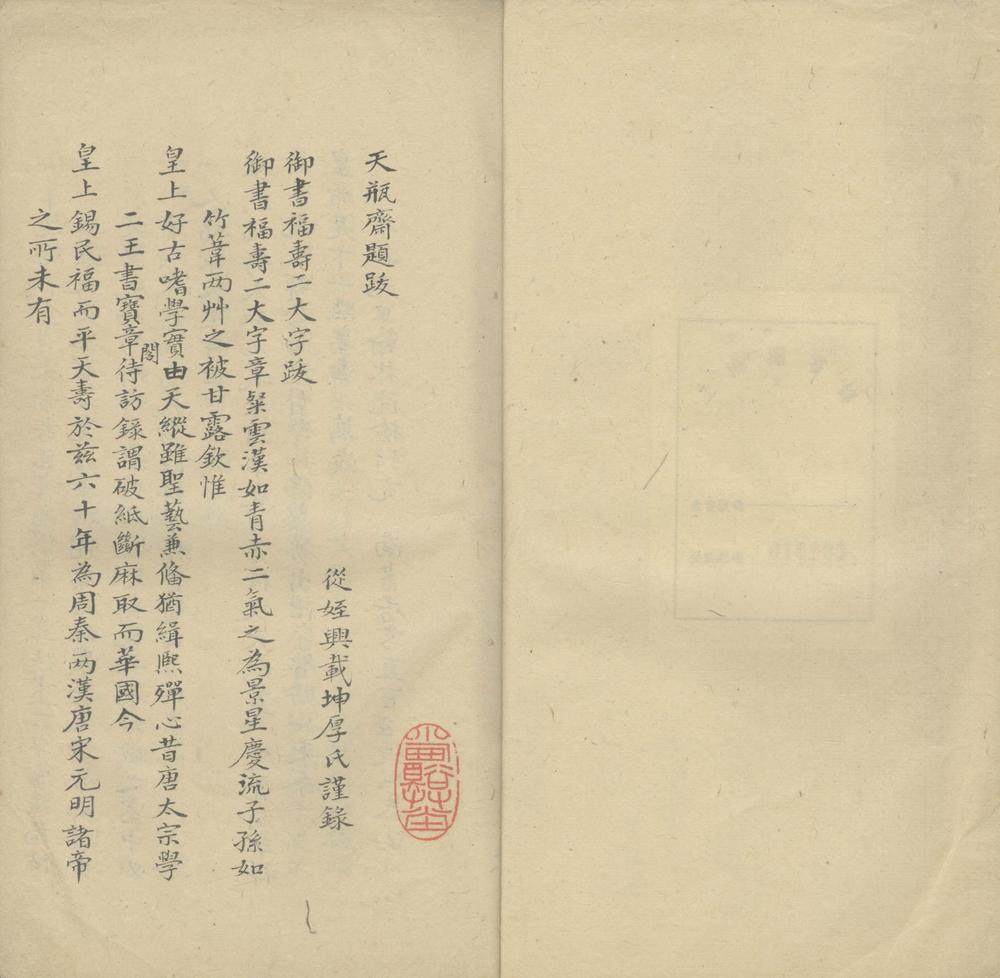 天瓶齋題跋
從姪興載坤厚氏謹錄
御書福壽二大字跋
御書福壽二大字章粲雲漢如青赤二氣之為景星慶流子孫如
竹葦两艸之被甘露欽惟
皇上好古嗜學實由天縱雖聖藝兼俻猶緝熈殫心昔唐太宗學
二王書寶章閣待訪錄謂破紙斷麻取而華國今
皇上錫民福而平天壽於兹六十年為周秦两漢唐宋元明諸帝
之所未有